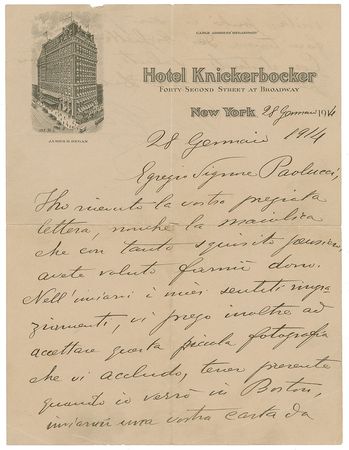 CABLE ADDRESS BROADNIGHT
Hotel Knickerbocker
FORTY-SECOND STREET AT BROADWAY
JAMES B. REGAN
New York 28 Gennaio 1914
28 Gennaio 1914
Egregio Signore Paolucci,
Ho ricevuto la vostra pregiata
lettera, nonché la maiolica
che con tanto squisito pensiero
avete voluto farmi dono.
Nell'inviarvi i miei sentiti ringra
ziamenti, vi prego inoltre ad
accettare questa piccola fotografia
che vi accludo, tener presente
quando io verrò in Boston,
inviarmi una vostra carta da